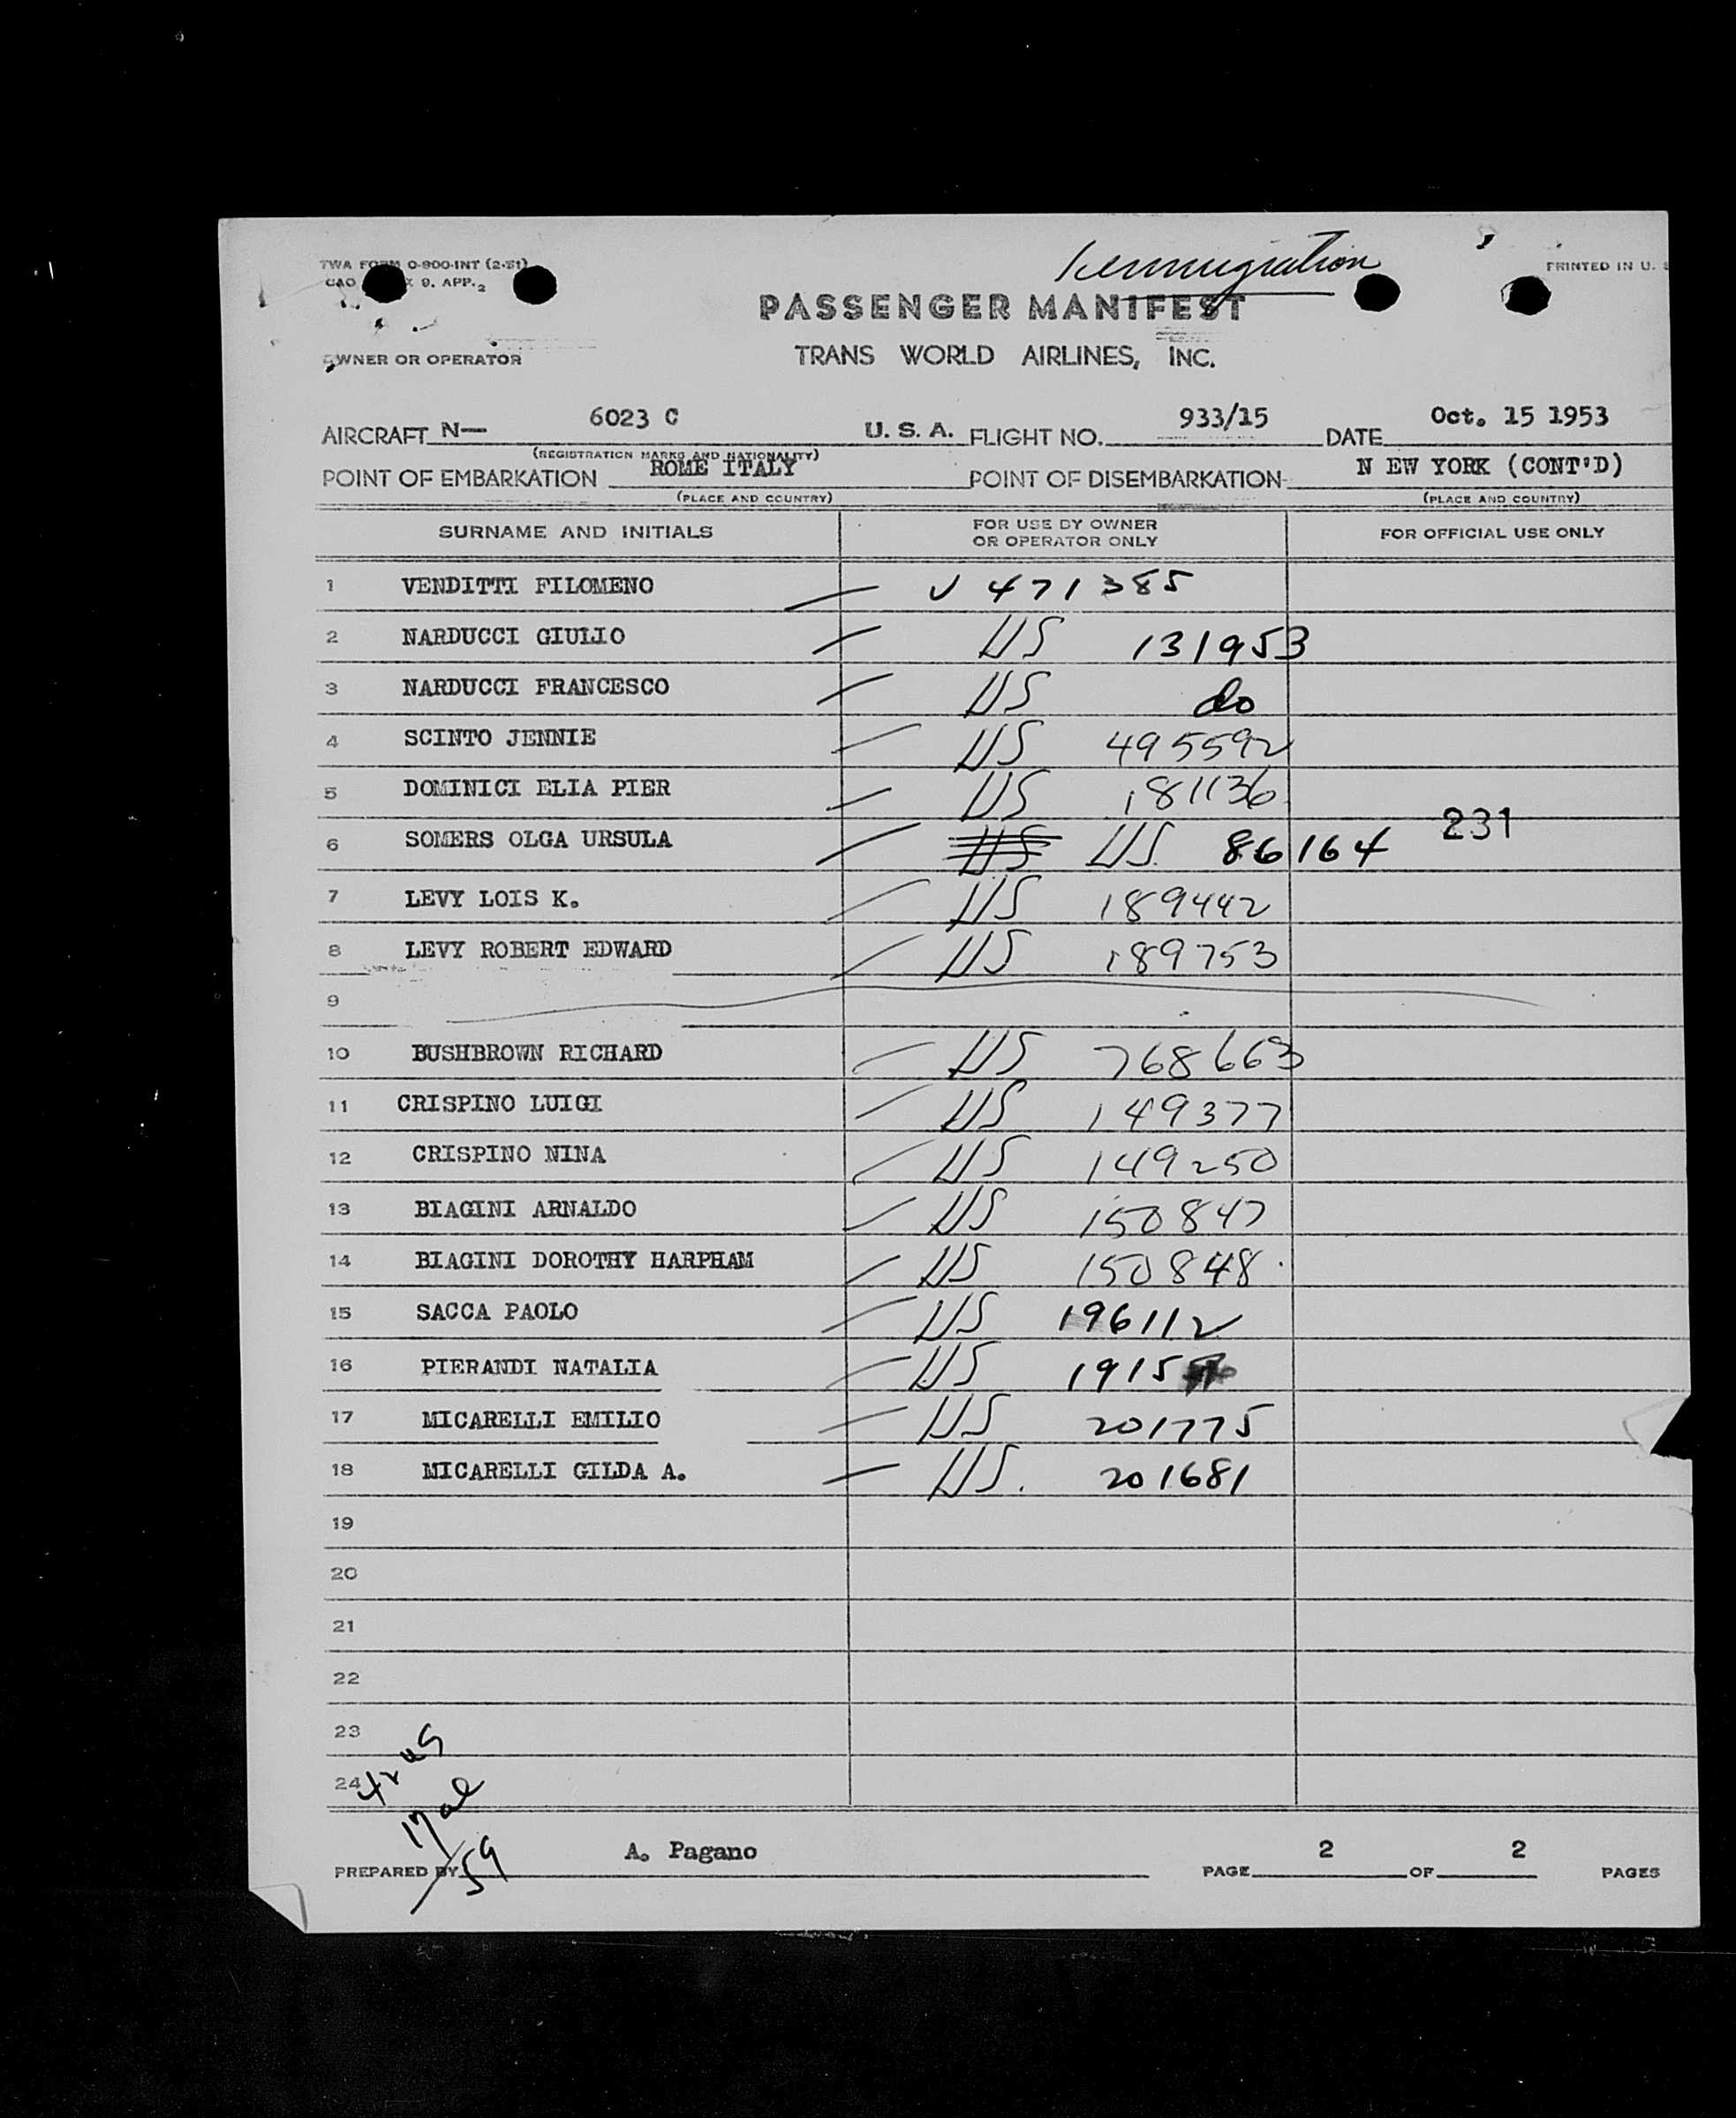 TWA FORM O-900-INT (2-51)
CAO 9. APP. 2
Immigration
PRINTED IN U. S
PASSENGER MANIFEST
OWNER OR OPERATOR
TRANS WORLD AIRLINES, INC.
AIRCRAFT N— 6023 C U. S. A. FLIGHT NO. 933/15 DATE Oct. 15 1953
(REGISTRATION MARKS AND NATIONALITY)
POINT OF EMBARKATION ROME ITALY POINT OF DISEMBARKATION N EW YORK (CONT'D)
(PLACE AND COUNTRY) (PLACE AND COUNTRY)
SURNAME AND INITIALS FOR USE BY OWNER OR OPERATOR ONLY FOR OFFICIAL USE ONLY
1 VENDITTI FILOMENO — V 471385
2 NARDUCCI GIULIO — US 131953
3 NARDUCCI FRANCESCO — US do
4 SCINTO JENNIE — US 495592
5 DOMINICI ELIA PIER — US 181136
231
6 SOMERS OLGA URSULA — US US. 86164
7 LEVY LOIS K. — US 189442
8 LEVY ROBERT EDWARD — US 189753
9
10 BUSHBROWN RICHARD — US 768663
11 CRISPINO LUIGI — US 149377
12 CRISPINO NINA — US 149250
13 BIAGINI ARNALDO — US 150847
14 BIAGINI DOROTHY HARPHAM — US 150848
15 SACCA PAOLO — US 196112
16 PIERANDI NATALIA — US
17 MICARELLI EMILIO — US 201775
18 MICARELLI GILDA A. — US. 201681
19
20
21
22
23
24
42 US
17 al
59
PREPARED BY A. Pagano PAGE 2 OF 2 PAGES